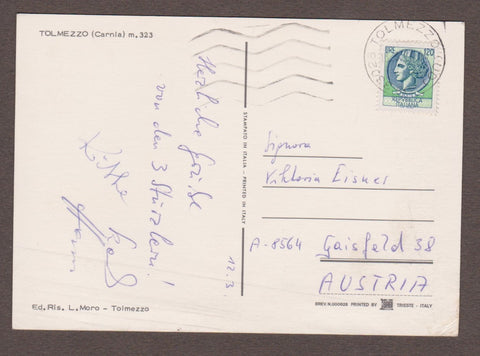 TOLMEZZO (Carnia) m. 323
Herzliche Grüße
von den 3 Stürzlern!
12.3.
Ed. Ris. L. Moro - Tolmezzo
STAMPATO IN ITALIA - PRINTED IN ITALY
TOLMEZZO
LIRE 120
Signora
Viktoria Eisner
A-8564 Gaisfeld 38
AUSTRIA
BREV. N. 000628 PRINTED BY TRIESTE - ITALY